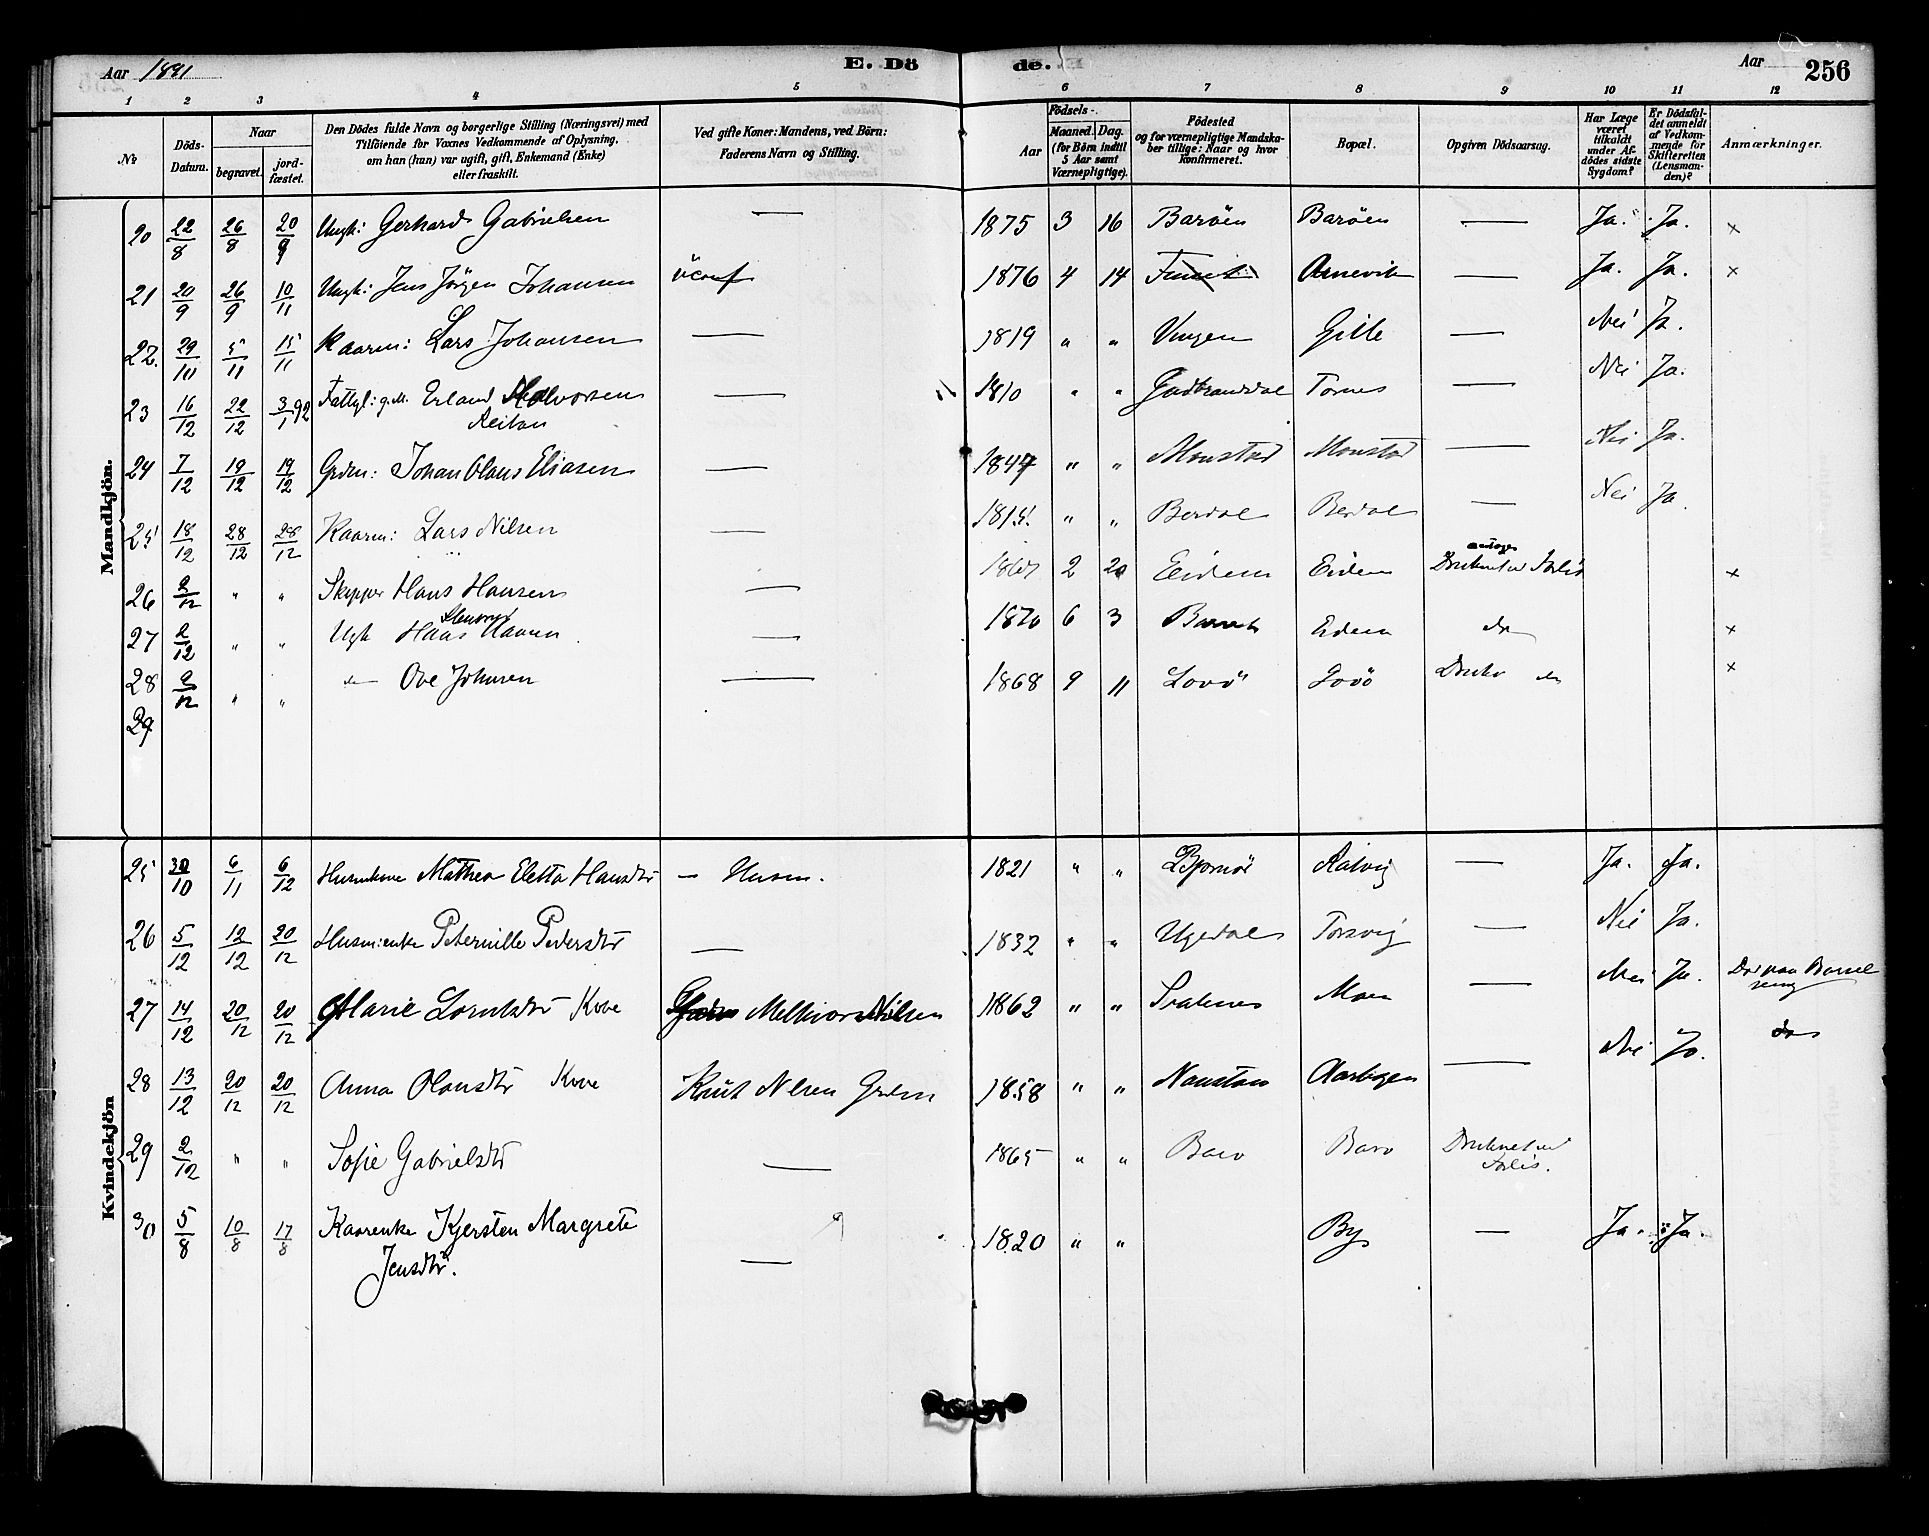 Aar 1891 E. Dö de. Aar 256
1 2 3 4 5 6 7 8 9 10 11 12
No
Döds-Datum.
Naar begravet. jord-fæstet.
Den Dödes fulde Navn og borgerlige Stilling (Næringsvei) med
Tilföiende for Voxnes Vedkommende af Oplysning,
om han (hun) var ugift, gift, Enkemand (Enke)
eller fraskilt.
Ved gifte Koner: Mandens, ved Börn:
Faderens Navn og Stilling.
Födsels-
Aar Maaned. Dag.
(for Börn indtil
5 Aar samt
Værnepligtige).
Födested
og for værnepligtige Mandska-
ber tillige: Naar og hvor
Konfirmeret.
Bopæl.
Opgiven Dödsaarsag.
Har Læge
været
tilkaldt
under Af-
dödes sidste
Sygdom?
Er Dödsfal-
det anmeldt
af Vedkom-
mende for
Skifteretten
(Lensman-
den)?
Anmærkninger.
Mandkjön.
20 22/8 26/8 20/9 Ungk: Gerhard Gabrielsen — 1875 3 16 Baröen Baröen — Ja. Ja. ×
21 20/9 26/9 10/11 Ungk: Jens Jörgen Johansen 1876 4 14 — Ja. Ja. ×
22. 29/10 5/11 15/11 Kaarm: Lars Johansen — 1819 " " Vingen — Nei Ja.
23 16/12 22/12 3/1 92 Fattgl: g.M. Erland Halvorsen — 1810 " " Gudbrandsdal Tornes — Nei Ja.
Reitan
24 7/12 19/12 19/12 Grdm: Johan Olaus Eliasen — 1847 " " Monstad Monstad — Nei Ja.
25 18/12 28/12 28/12 Kaarm: Lars Nilsen — 1815. " " Berdal Berdal — Nei Ja
26 2/12 " " Skipper Hans Hansen — 2 20 Eidem Eidem ×
27 2/12 " " Ugk Hans Hansen — 1870 6 3 Eidem do ×
28 2/12 " " do Ove Johnsen — 1868 9 11 Lovö Lovö do ×
29
Kvindekjön
25 30/10 6/11 6/12 Husmkone Mathea Eletta Hansdtr — Husm. 1821 " " Bjørnör Ratvig — Ja. Ja.
26 5/12 12/12 20/12 Husm:enke Peternille Pedersdtr — 1832 " " Ugedal Torsvig — Nei Ja.
27 14/12 20/12 20/12 Marie Lorntsdtr Kone Melkior Nilsen 1862 " " Moen — Nei Ja.
28 13/12 20/12 20/12 Anna Olausdtr Kone Knut Nilsen Grdm 1858 " " Naustan Aarbogen — Nei Ja. do
29 2/12 " " Sofie Gabrielsdtr — 1865 " " Barö Barö Druknet ved
Forlis.
30 5/8 10/8 17/8 Kaarenke Kjersten Margrete 1820 " " By — Ja. Ja.
Jensdtr. —